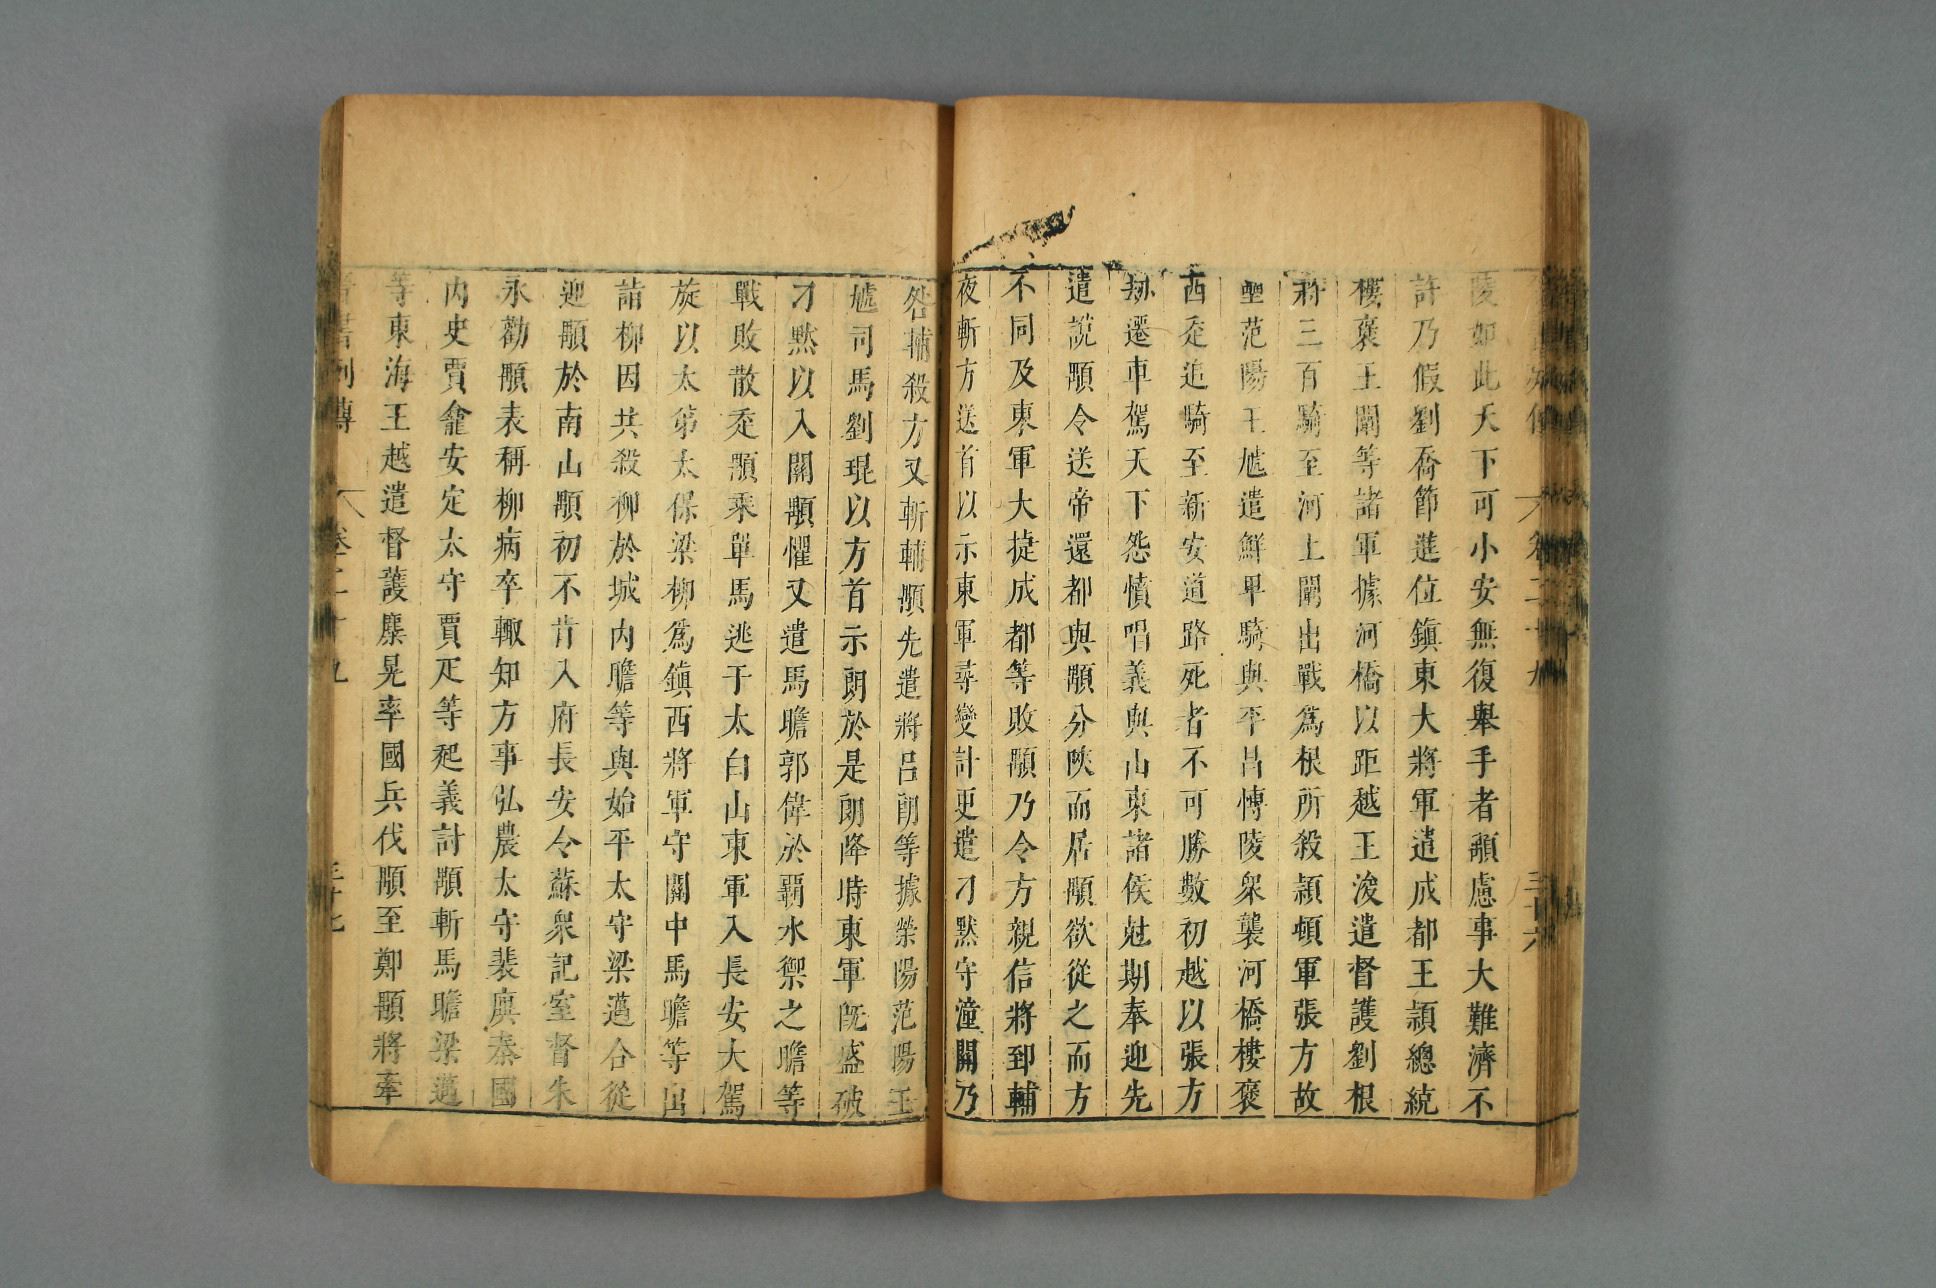 陵如此天下可小安無復舉手者顒慮事大難濟不
許乃假劉喬節進位鎮東大將軍遣成都王頴總統
樓褒王闡等諸軍據河橋以距越王浚遣督護劉根
將三百騎至河上闡出戰爲根所殺頴頓軍張方故
壘范陽王虓遣鮮卑騎與平昌愽陵衆襲河橋樓褒
西走追騎至新安道路死者不可勝數初越以張方
刼遷車駕天下怨憤唱義與山東諸侯尅期奉迎先
遣說顒令送帝還都與顒分陝而居顒欲從之而方
不同及東軍大捷成都等敗顒乃令方親信將郅輔
夜斬方送首以示東軍尋變計更遣刁黙守潼關乃
咎輔殺方又斬輔顒先遣將呂朗等據滎陽范陽王
虓司馬劉琨以方首示朗於是朗降時東軍旣盛破
刁黙以入關顒懼又遣馬瞻郭偉於霸水禦之瞻等
戰敗散走顒乘單馬逃于太白山東軍入長安大駕
旋以太弟太保梁柳爲鎮西將軍守關中馬瞻等出
詣柳因共殺柳於城內瞻等與始平太守梁邁合從
迎顒於南山顒初不肯入府長安令蘇衆記室督朱
永勸顒表稱柳病卒輙知方事弘農太守裴廙秦國
内史賈龕安定太守賈疋等起義討顒斬馬瞻梁邁
等東海王越遣督護麋晃率國兵伐顒至鄭顒將牽
書列傳 卷二十九 三十七